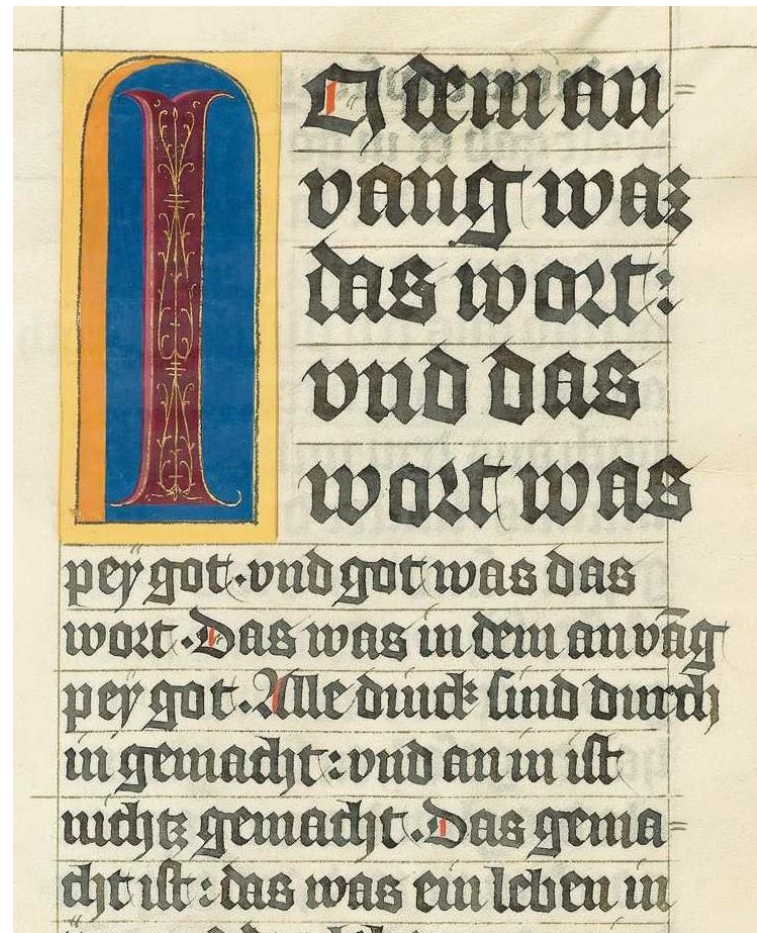 IN dem an=
vang waz
das wort:
vnd das
wort was
peÿ got·vnd got was das
wort·Das was in dem anvāg
peÿ got·Alle dinck sind durch
in gemacht:vnd an in ist
nichtz gemacht·Das gema=
cht ist:das was ein leben in